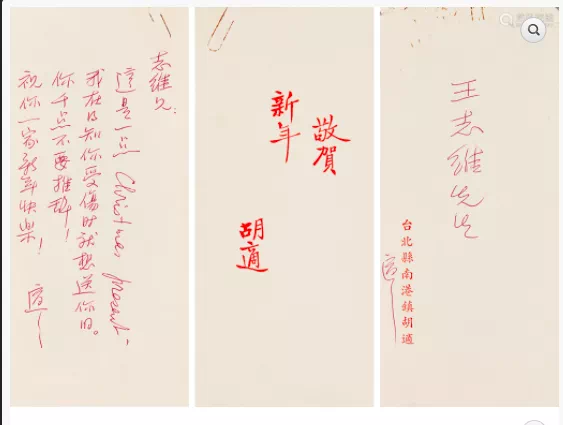 志維兄:
這是一點 Christmas present.
我在知你受傷時就想送你的。
你千萬不要推辭!
祝你一家新年快樂!
適
敬賀
新年
胡適
王志維先生
台北縣南港鎮胡適
適